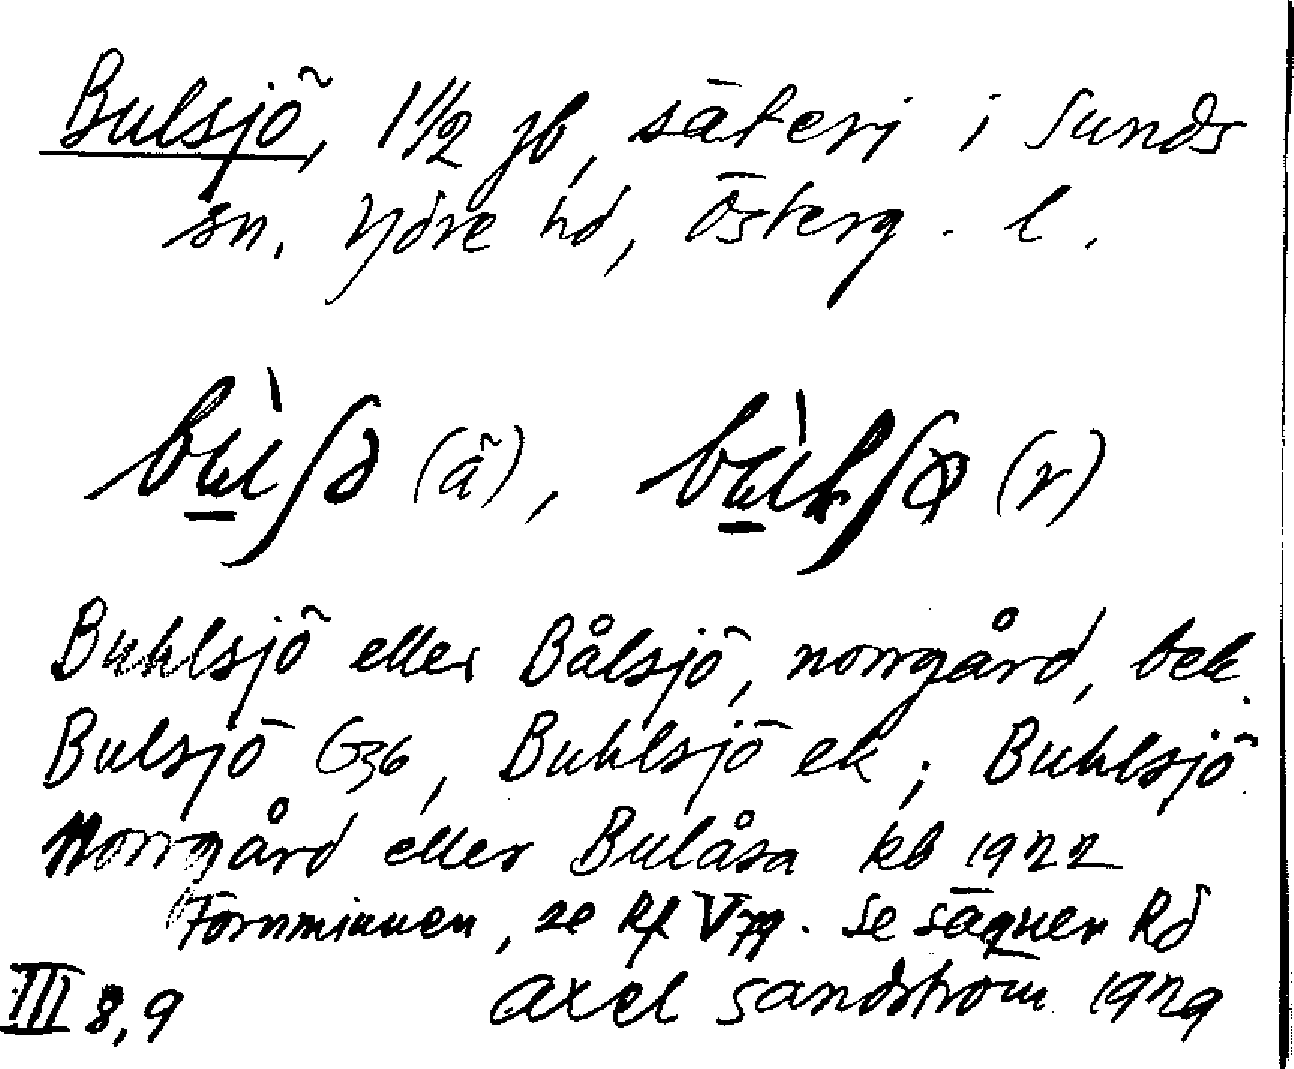 Bulsjö, 1 1/2 jb, säteri i Sunds
sn, Ydre hd, Österg. l.
bùʃə (ã), bùlʃø (r)
Buhlsjö eller Bålsjö, norrgård, bek.
Bulsjö G36, Buhlsjö ek; Buhlsjö
Norrgård eller Bulåsa kb 1922
Fornminnen, se Rf V79. Se sägner Rd
III 8,9 Axel Sandström 1929